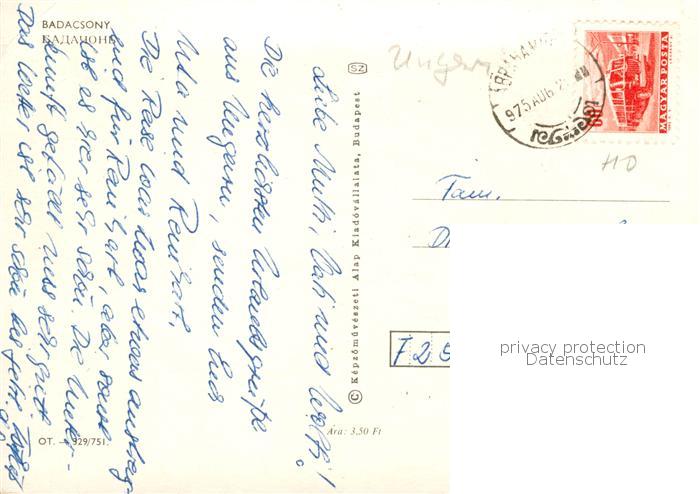 BADACSONY
БАДАЧОНЬ
Liebe Mutti, Vati und Wolfi!
Die herzlichsten Urlaubsgrüße
aus Ungarn, senden Euch
Uta und Reinhart.
Die Reise war etwas anstreng-
end für Reinhart, aber sonst
ist es hier sehr schön. Die Unter-
kunft gefällt uns sehr gut.
Das Wetter ist sehr schön
OT. — 929/751.
SZ
© Képzőművészeti Alap Kiadóvállalata, Budapest
Ára: 3,50 Ft
Ungarn
975 AUG 2
MAGYAR POSTA
Fam.
D
725
privacy protection
Datenschutz